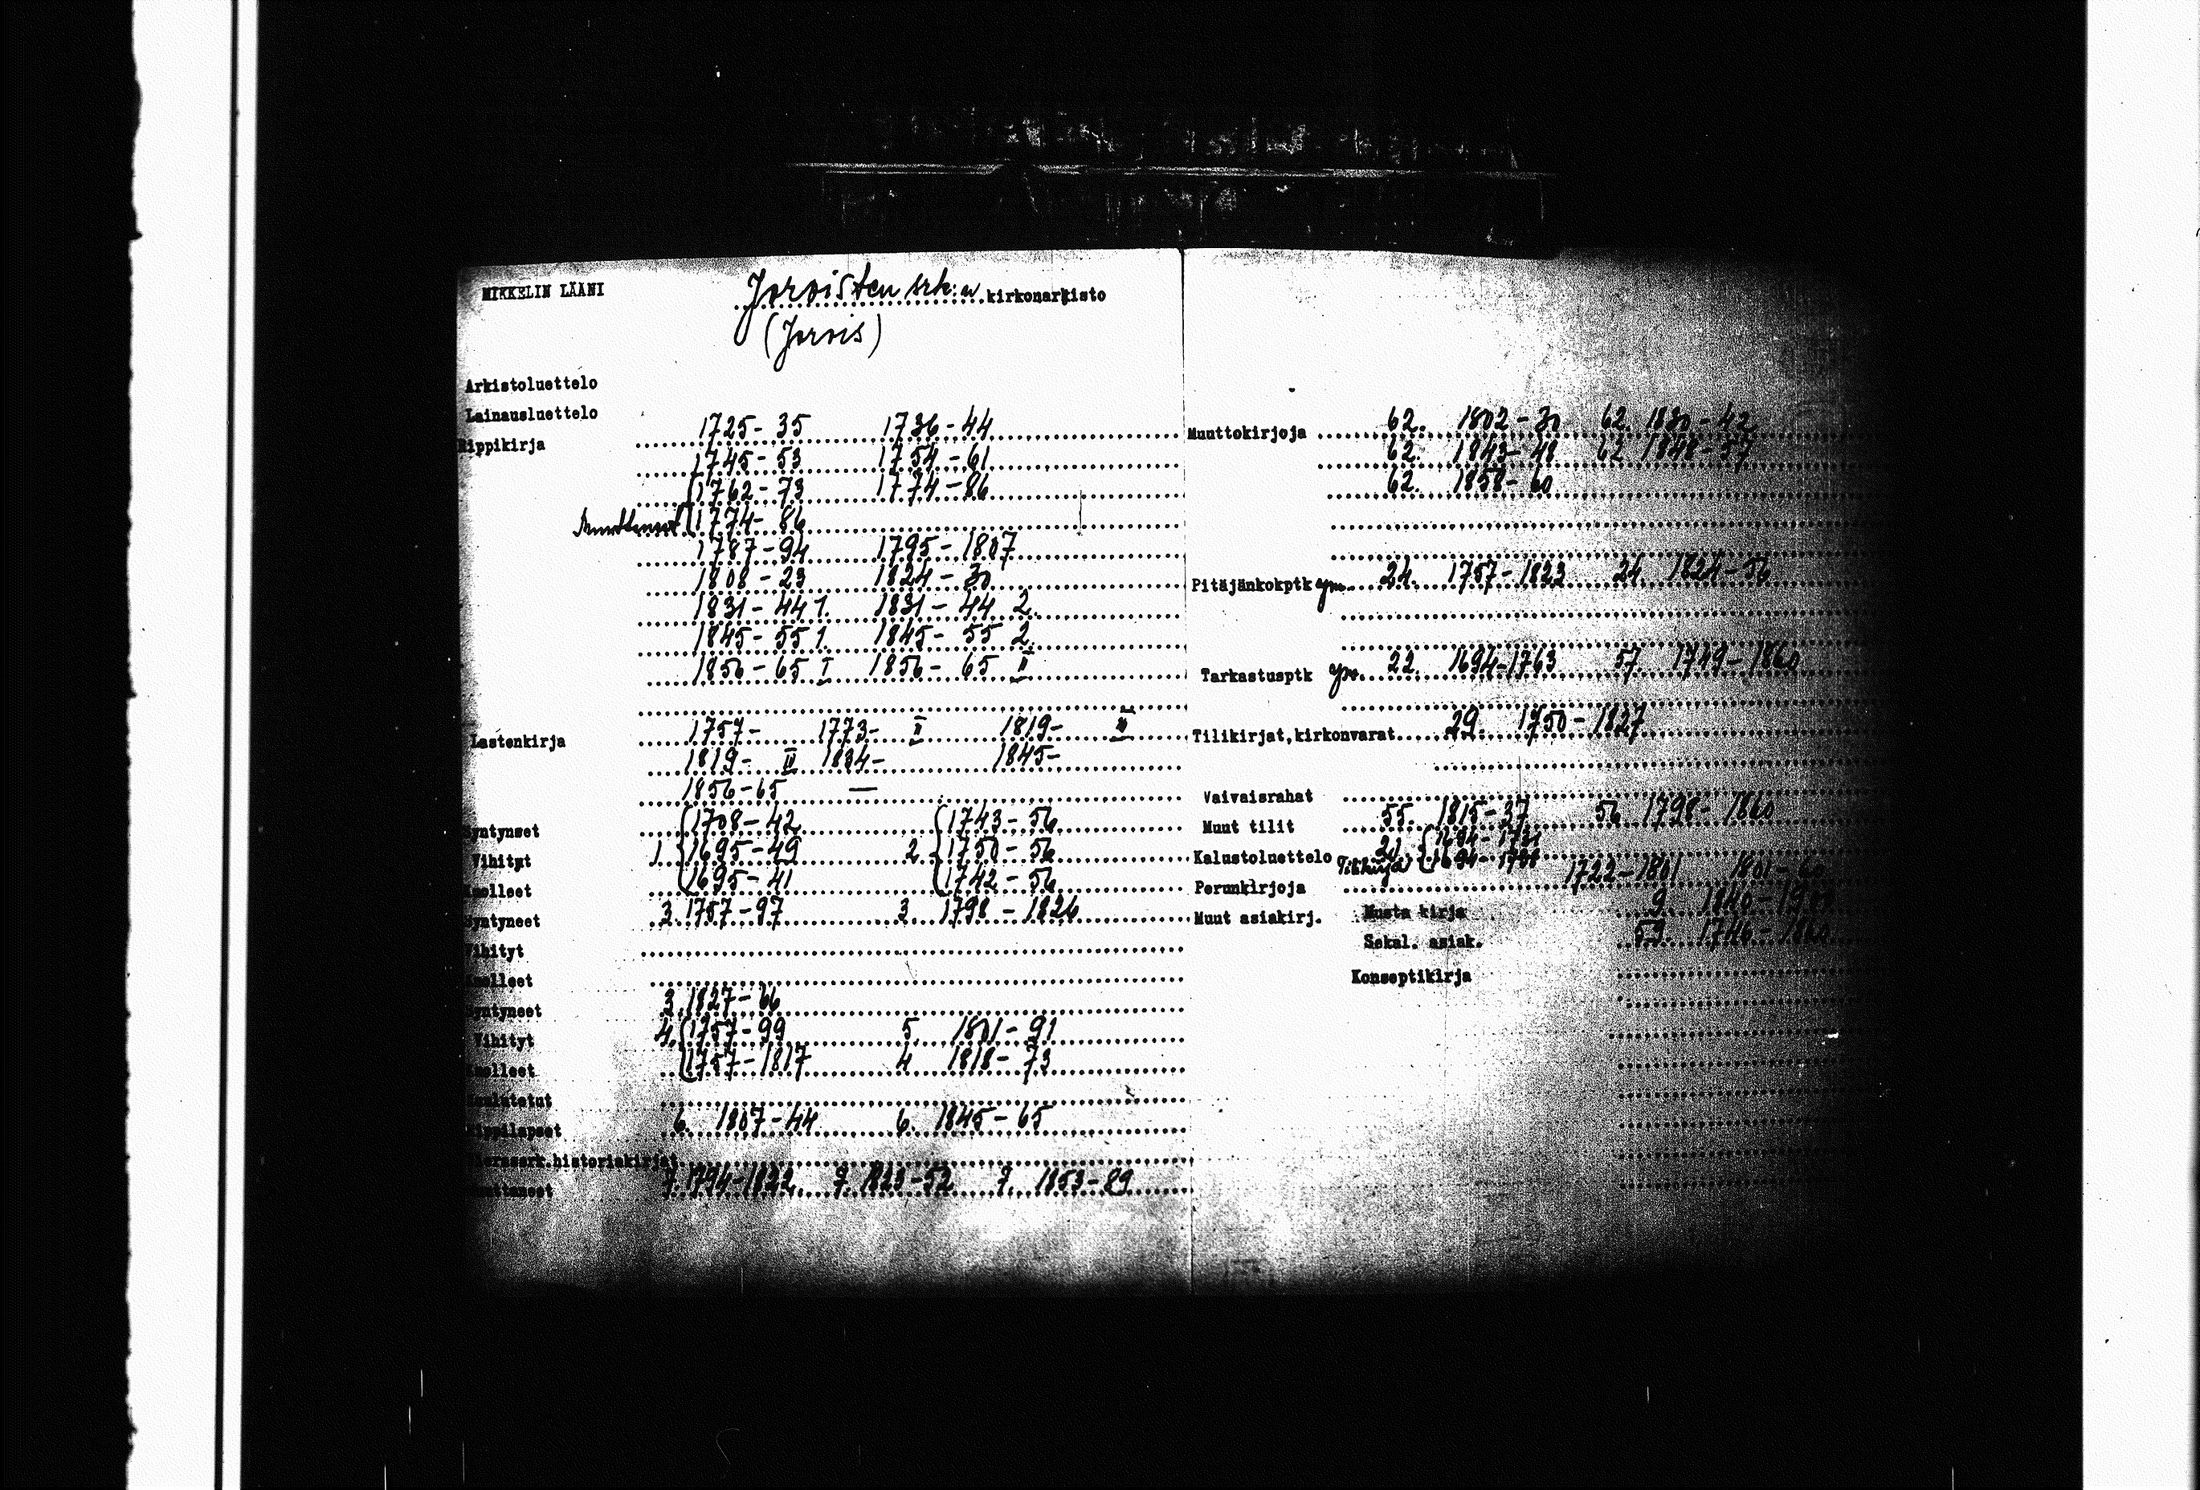 MIKKELIN LÄÄNI
Joroisten srk:n kirkonarkisto
(Jorois)
Arkistoluettelo
Lainausluettelo
Rippikirja 1725-35 1736-44
1745-53 1754-61
1762-73 1774-86
1774-86
1787-94 1795-1807
1808-23 1824-30
1831-44 1. 1831-44 2.
1845-55 1. 1845-55 2.
1856-65 I 1856-65 II
Lastenkirja 1757- 1773- II 1819-
1819- 1834- 1845-
1856-65 —
Syntyneet 1708-42 1743-56
Vihityt 1. 1695-49 2. 1750-56
Kuolleet 1695-41 1742-56
Syntyneet 3. 1757-97 3. 1798-1826
Vihityt
Kuolleet
Syntyneet 3. 1827-66
Vihityt 4. 1757-99 5. 1801-91
Kuolleet 1757-1817 4 1818-73
Kuulutetut
Rippilapset 6. 1807-44 6. 1845-65
historiakirjat
Muuttaneet 7. 1794-1822 7. 1823-52 7. 1853-89
Muuttokirjoja 62. 1802-30 62. 1830-42
62. 1843-48 62 1848-57
62. 1858-60
Pitäjänkokptk ym. 24. 1757-1823 24. 1824-56
Tarkastusptk ym. 22. 1694-1763 57. 1749-1860
Tilikirjat, kirkonvarat 29. 1750-1827
Vaivaisrahat
Muut tilit 55. 1815-37 56 1798-1860
Kalustoluettelo Tilikirja
Perunkirjoja 1722-1801
Muut asiakirj. Musta kirja 9.
Sekal. asiak. 59. 1746-1860
Konseptikirja